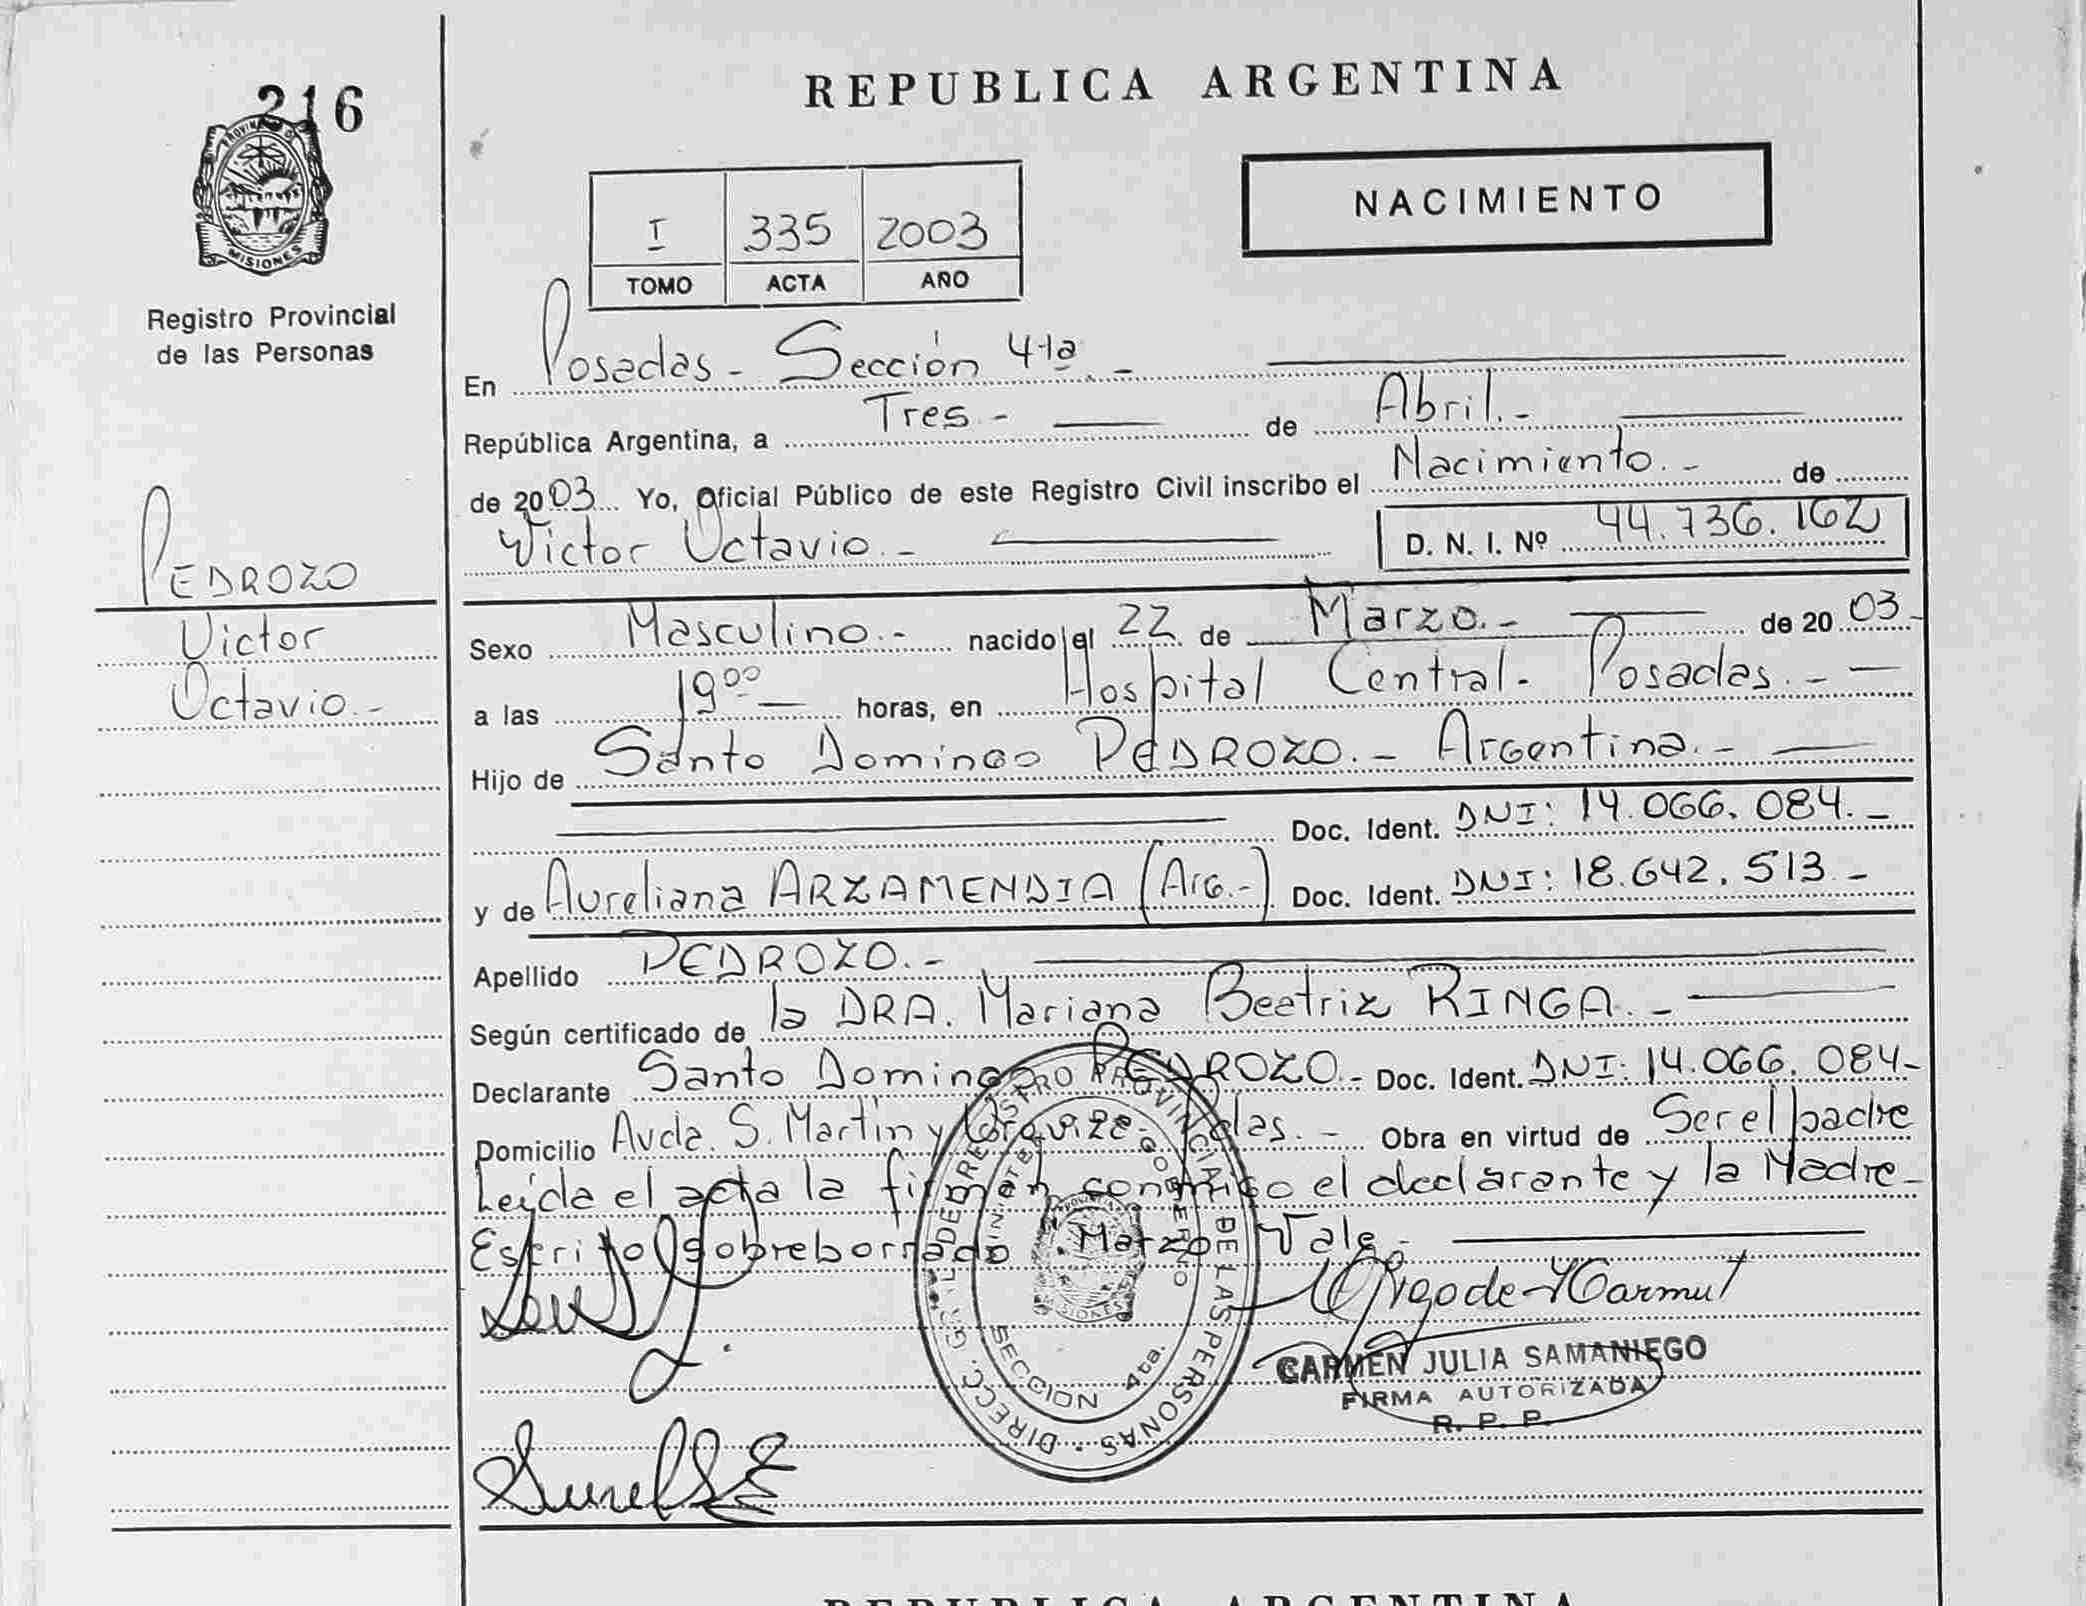 216
PROVINCIA DE
MISIONES
Registro Provincial
de las Personas
PEDROZO
Victor
Octavio.-
REPUBLICA ARGENTINA
NACIMIENTO
I 335 2003
TOMO ACTA AÑO
En Posadas - Sección 4ta.-
República Argentina, a Tres.- de Abril.-
de 2003 Yo, Oficial Público de este Registro Civil inscribo el Nacimiento.- de
Victor Octavio.- D. N. I. Nº 44.736.162
Sexo Masculino.- nacido el 22 de Marzo.- de 2003-
a las 19⁰⁰ horas, en Hospital Central- Posadas.-
Hijo de Santo Domingo PEDROZO.- Argentina.-
Doc. Ident. DNI: 14.066.084.-
y de Aureliana ARZAMENDIA (Arg.-) Doc. Ident. DNI: 18.642.513.-
Apellido PEDROZO.-
Según certificado de la DRA. Mariana Beatriz RINGA.-
Declarante Santo Domingo PEDROZO.- Doc. Ident. DNI: 14.066.084-
Domicilio Avda. S. Martin y Pdas.- Obra en virtud de Ser el padre
Leída el acta la firman conmigo el declarante y la Madre-
Escrito sobreborrado: Marzo: Vale.-
DIRECC. GRAL. DE REGISTRO PROVINCIAL DE LAS PERSONAS
GOBIERNO
SECCION 4ta.
MISIONES
CARMEN JULIA SAMANIEGO
FIRMA AUTORIZADA
R. P. P.
REPUBLICA ARGENTINA